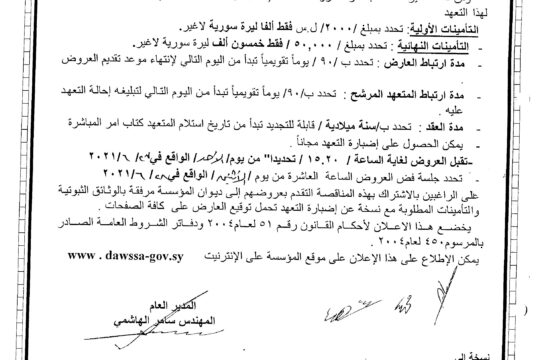 لهذا التعهد
التأمينات الأولية: تحدد بمبلغ /٢٠٠٠/ ل.س فقط ألفا ليرة سورية لاغير.
- التأمينات النهائية : تحدد بمبلغ / ٥٠,٠٠٠ / فقط خمسون ألف ليرة سورية لاغير.
- مدة ارتباط العارض : تحدد ب /٩٠ / يوماً تقويمياً تبدأ من اليوم التالي لإنتهاء موعد تقديم العروض
- مدة ارتباط المتعهد المرشح : تحدد ب/٩٠/ يوماً تقويمياً تبدأ من اليوم التالي لتبليغه إحالة التعهد
عليه .
- مدة العقد : تحدد ب/سنة ميلادية / قابلة للتجديد تبدأ من تاريخ استلام المتعهد كتاب امر المباشرة
- يمكن الحصول على إضبارة التعهد مجاناً .
-تقبل العروض لغاية الساعة / ١٥.٣٠ / تحديدا" من يوم/ الواقع في / ٦ /٢٠٢١
- تحدد جلسة فض العروض الساعة العاشرة من يوم / الواقع في / ٦ /٢٠٢١
على الراغبين بالاشتراك بهذه المناقصة التقدم بعروضهم إلى ديوان المؤسسة مرفقة بالوثائق الثبوتية
والتأمينات المطلوبة مع نسخة عن إضبارة التعهد تحمل توقيع العارض على كافة الصفحات .
يخضع هذا الاعلان لأحكام القانون رقم ٥١ لعام ٢٠٠٤ ودفاتر الشروط العامة الصادر
بالمرسوم ٤٥٠ لعام ٢٠٠٤ .
يمكن الإطلاع على هذا الإعلان على موقع المؤسسة على الإنترنيت www . dawssa-gov.sy
المدير العام
المهندس سامر الهاشمي
نسخة إلى